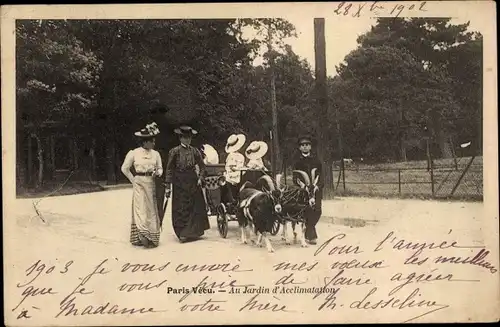 28 Xbre 1902
Paris Vécu. — Au Jardin d'Acclimatation
Pour l'année
1903 Je vous envoie mes vœux les meilleurs
que je vous de faire agréer
à Madame votre mère. M.